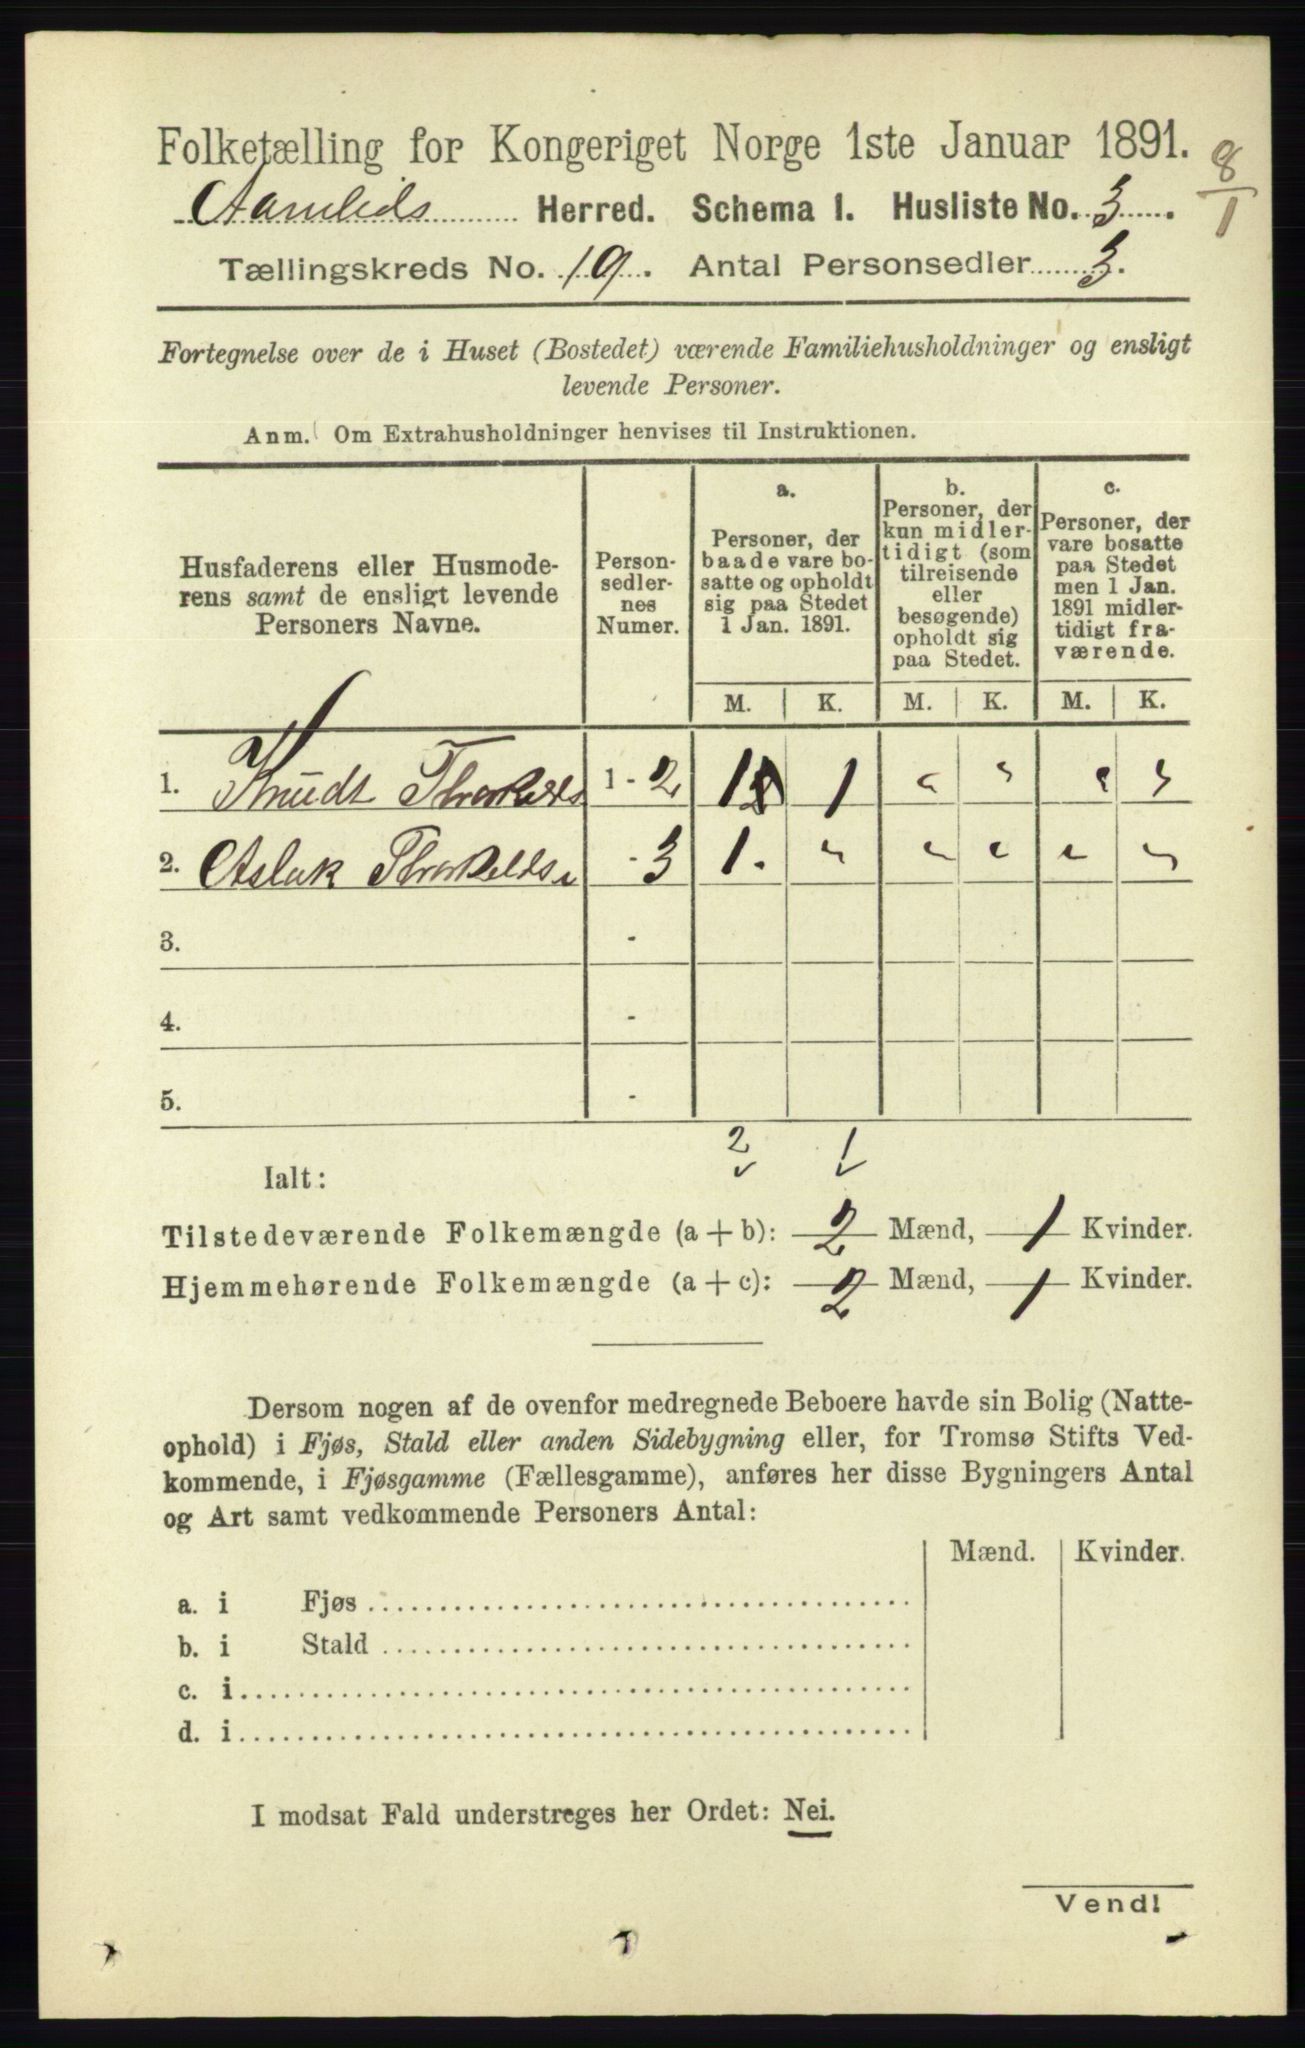 Folketælling for Kongeriget Norge 1ste Januar 1891.
8
1
Aamlids Herred. Schema 1. Husliste No. 3.
Tællingskreds No. 19. Antal Personsedler 3.
Fortegnelse over de i Huset (Bostedet) værende Familiehusholdninger og ensligt
levende Personer.
Anm. Om Extrahusholdninger henvises til Instruktionen.
Husfaderens eller Husmode-
rens samt de ensligt levende
Personers Navne.
Person-
sedler-
nes
Numer.
a.
Personer, der
baade vare bo-
satte og opholdt
sig paa Stedet
1 Jan. 1891.
b.
Personer, der
kun midler-
tidigt (som
tilreisende
eller
besøgende)
opholdt sig
paa Stedet.
c.
Personer, der
vare bosatte
paa Stedet
men 1 Jan.
1891 midler-
tidigt fra-
værende.
M. K. M. K. M. K.
1. Knudt Thorkelds 1-2 1 1 " " " "
2. Aslak Thorkelds -3 1. " " " " "
3. -
4. -
5. -
2 1
Ialt:
Tilstedeværende Folkemængde (a + b): 2 Mænd, 1 Kvinder.
Hjemmehørende Folkemængde (a + c): 2 Mænd, 1 Kvinder.
Dersom nogen af de ovenfor medregnede Beboere havde sin Bolig (Natte-
ophold) i Fjøs, Stald eller anden Sidebygning eller, for Tromsø Stifts Ved-
kommende, i Fjøsgamme (Fællesgamme), anføres her disse Bygningers Antal
og Art samt vedkommende Personers Antal:
Mænd. Kvinder.
a. i Fjøs
b. i Stald
c. i
d. i
I modsat Fald understreges her Ordet: Nei.
Vend!